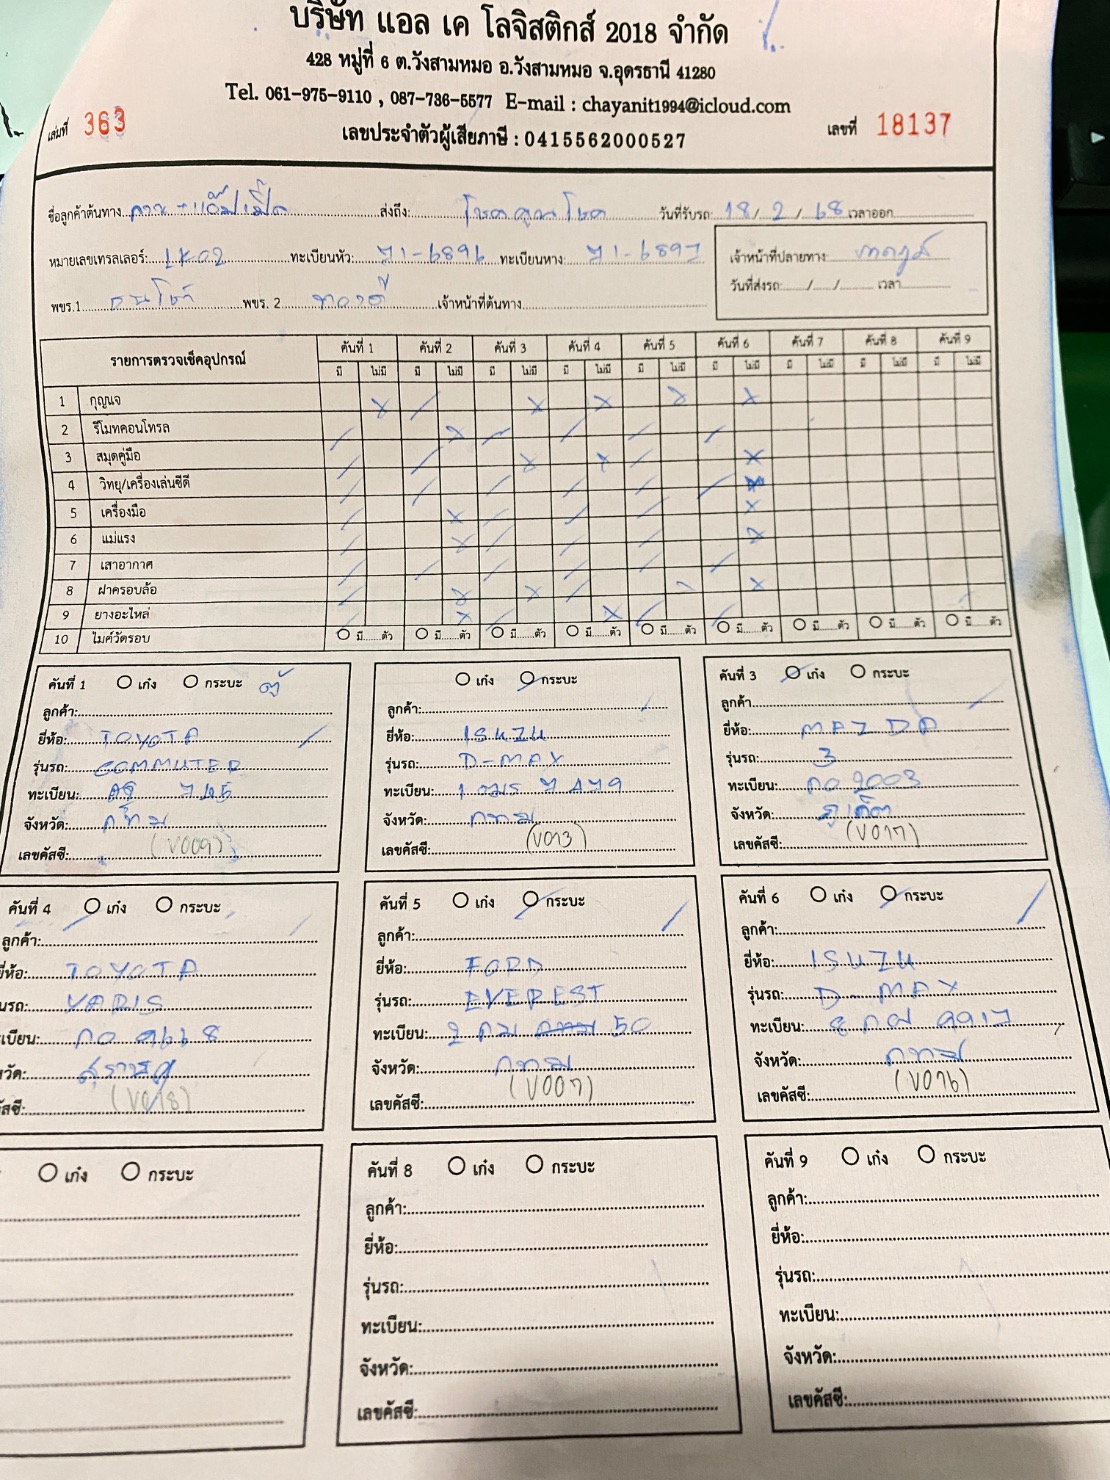 บริษัท แอล เค โลจิสติกส์ 2018 จำกัด
428 หมู่ที่ 6 ต.วังสามหมอ อ.วังสามหมอ จ.อุดรธานี 41280
Tel. 061-975-9110 , 087-736-5577 E-mail : chayanit1994@icloud.com
เล่มที่ 363 เลขประจำตัวผู้เสียภาษี : 0415562000527 เลขที่ 18137
ชื่อลูกค้าต้นทาง ส่งถึง: โชคคูณโชค วันที่รับรถ: 18/2/68 เวลาออก
หมายเลขเทรลเลอร์: LK02 ทะเบียนหัว: 71-6896 ทะเบียนหาง: 71-6897
เจ้าหน้าที่ปลายทาง:
วันที่ส่งรถ: / / เวลา
พขร.1 ธนโชติ พขร. 2 ทองดี เจ้าหน้าที่ต้นทาง:
รายการตรวจเช็คอุปกรณ์ คันที่ 1 คันที่ 2 คันที่ 3 คันที่ 4 คันที่ 5 คันที่ 6 คันที่ 7 คันที่ 8 คันที่ 9
มี ไม่มี มี ไม่มี มี ไม่มี มี ไม่มี มี ไม่มี มี ไม่มี มี ไม่มี มี ไม่มี มี ไม่มี
1 กุญแจ
2 รีโมทคอนโทรล
3 สมุดคู่มือ
4 วิทยุ/เครื่องเล่นซีดี
5 เครื่องมือ
6 แม่แรง
7 เสาอากาศ
8 ฝาครอบล้อ
9 ยางอะไหล่
10 ไมค์วัดรอบ มี ตัว มี ตัว มี ตัว มี ตัว มี ตัว มี ตัว มี ตัว มี ตัว มี ตัว
คันที่ 1 เก๋ง กระบะ ตู้
ลูกค้า:
ยี่ห้อ: TOYOTA
รุ่นรถ: COMMUTER
ทะเบียน: 765
จังหวัด: กทม
เลขคัสซี: (V009)
เก๋ง กระบะ
ลูกค้า:
ยี่ห้อ: ISUZU
รุ่นรถ: D-MAX
ทะเบียน: 1 ฒร 7479
จังหวัด: กทม
เลขคัสซี: (V013)
คันที่ 3 เก๋ง กระบะ
ลูกค้า
ยี่ห้อ: MAZDA
รุ่นรถ: 3
ทะเบียน: กอ 2003
จังหวัด: ภูเก็ต
เลขคัสซี: (V017)
คันที่ 4 เก๋ง กระบะ
ลูกค้า:
ยี่ห้อ: TOYOTA
รุ่นรถ: YARIS
เบียน: กอ 9668
หวัด: สุราษฎ
คัสซี: (V018)
คันที่ 5 เก๋ง กระบะ
ลูกค้า:
ยี่ห้อ: FORD
รุ่นรถ: EVEREST
ทะเบียน: 2 กม 50
จังหวัด: กทม
เลขคัสซี: (V007)
คันที่ 6 เก๋ง กระบะ
ลูกค้า:
ยี่ห้อ: ISUZU
รุ่นรถ: D-MAX
ทะเบียน: 8 กฝ 9917
จังหวัด: กทม
เลขคัสซี: (V016)
เก๋ง กระบะ
คันที่ 8 เก๋ง กระบะ
ลูกค้า:
ยี่ห้อ:
รุ่นรถ:
ทะเบียน:
จังหวัด:
เลขคัสซี:
คันที่ 9 เก๋ง กระบะ
ลูกค้า:
ยี่ห้อ:
รุ่นรถ:
ทะเบียน:
จังหวัด:
เลขคัสซี: